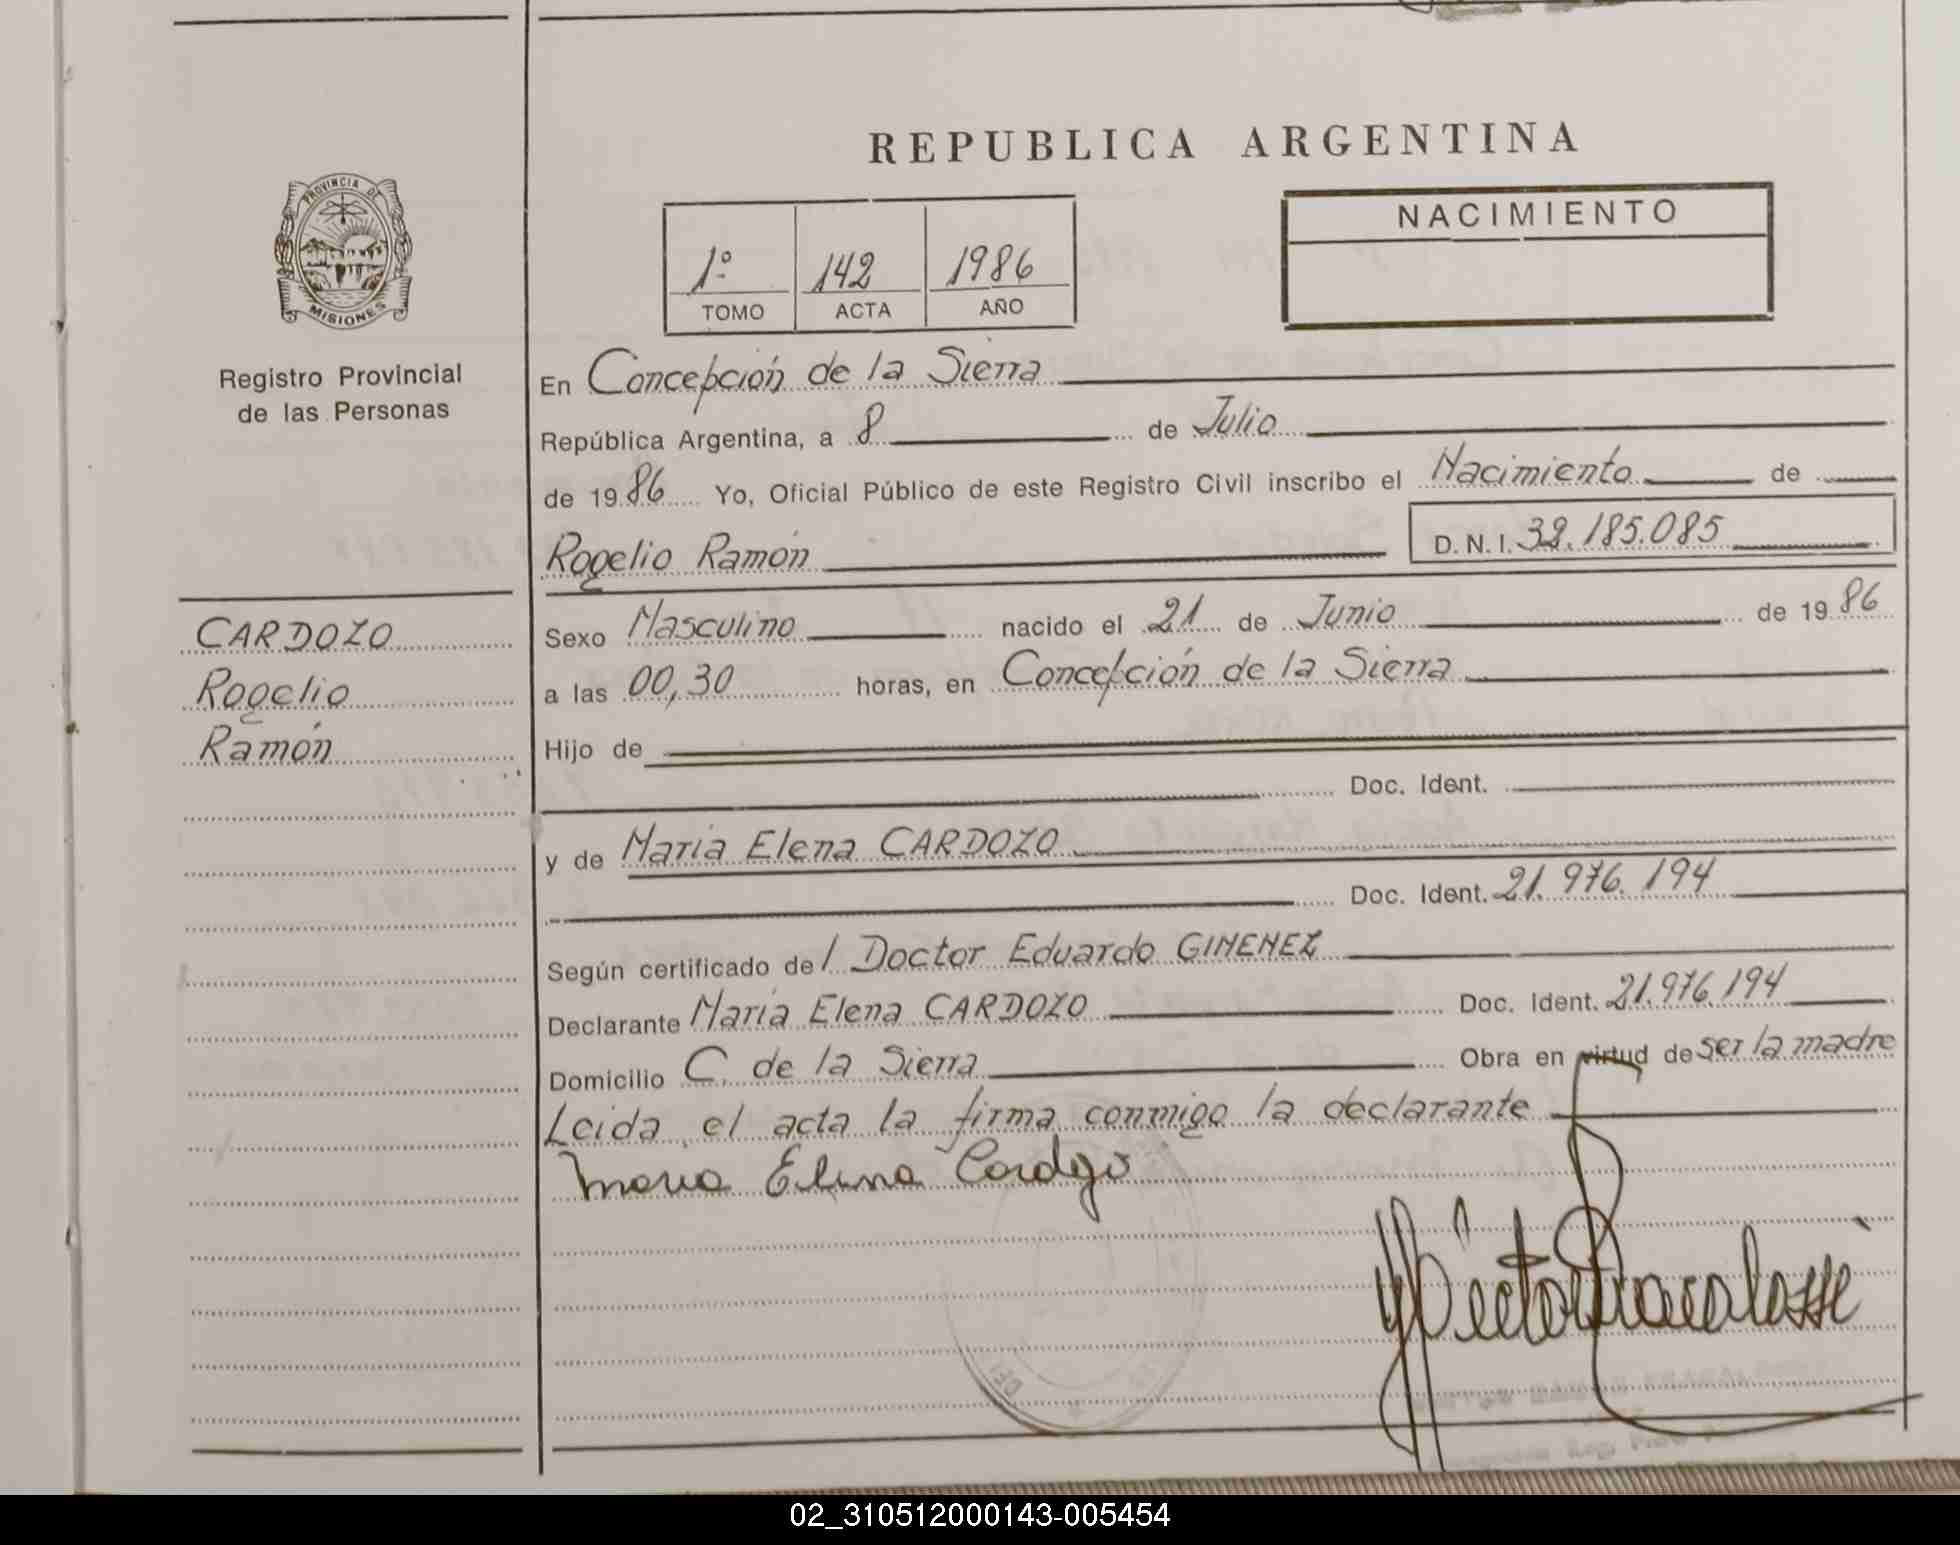 REPUBLICA ARGENTINA
PROVINCIA DE
MISIONES
Registro Provincial
de las Personas
1º 142 1986
TOMO ACTA AÑO
NACIMIENTO
En Concepción de la Sierra
República Argentina, a 8 de Julio
de 1986 Yo, Oficial Público de este Registro Civil inscribo el Nacimiento de
Rogelio Ramón D.N.I. 32.185.085
CARDOZO
Rogelio
Ramón
Sexo Masculino nacido el 21 de Junio de 1986
a las 00,30 horas, en Concepción de la Sierra
Hijo de
Doc. Ident.
y de Maria Elena CARDOZO
Doc. Ident. 21.976.194
Según certificado del Doctor Eduardo GIMENEZ
Declarante María Elena CARDOZO Doc. Ident. 21.976.194
Domicilio C. de la Sierra Obra en virtud de ser la madre
Leida el acta la firma conmigo la declarante
Maria Elena Cardozo
02_310512000143-005454